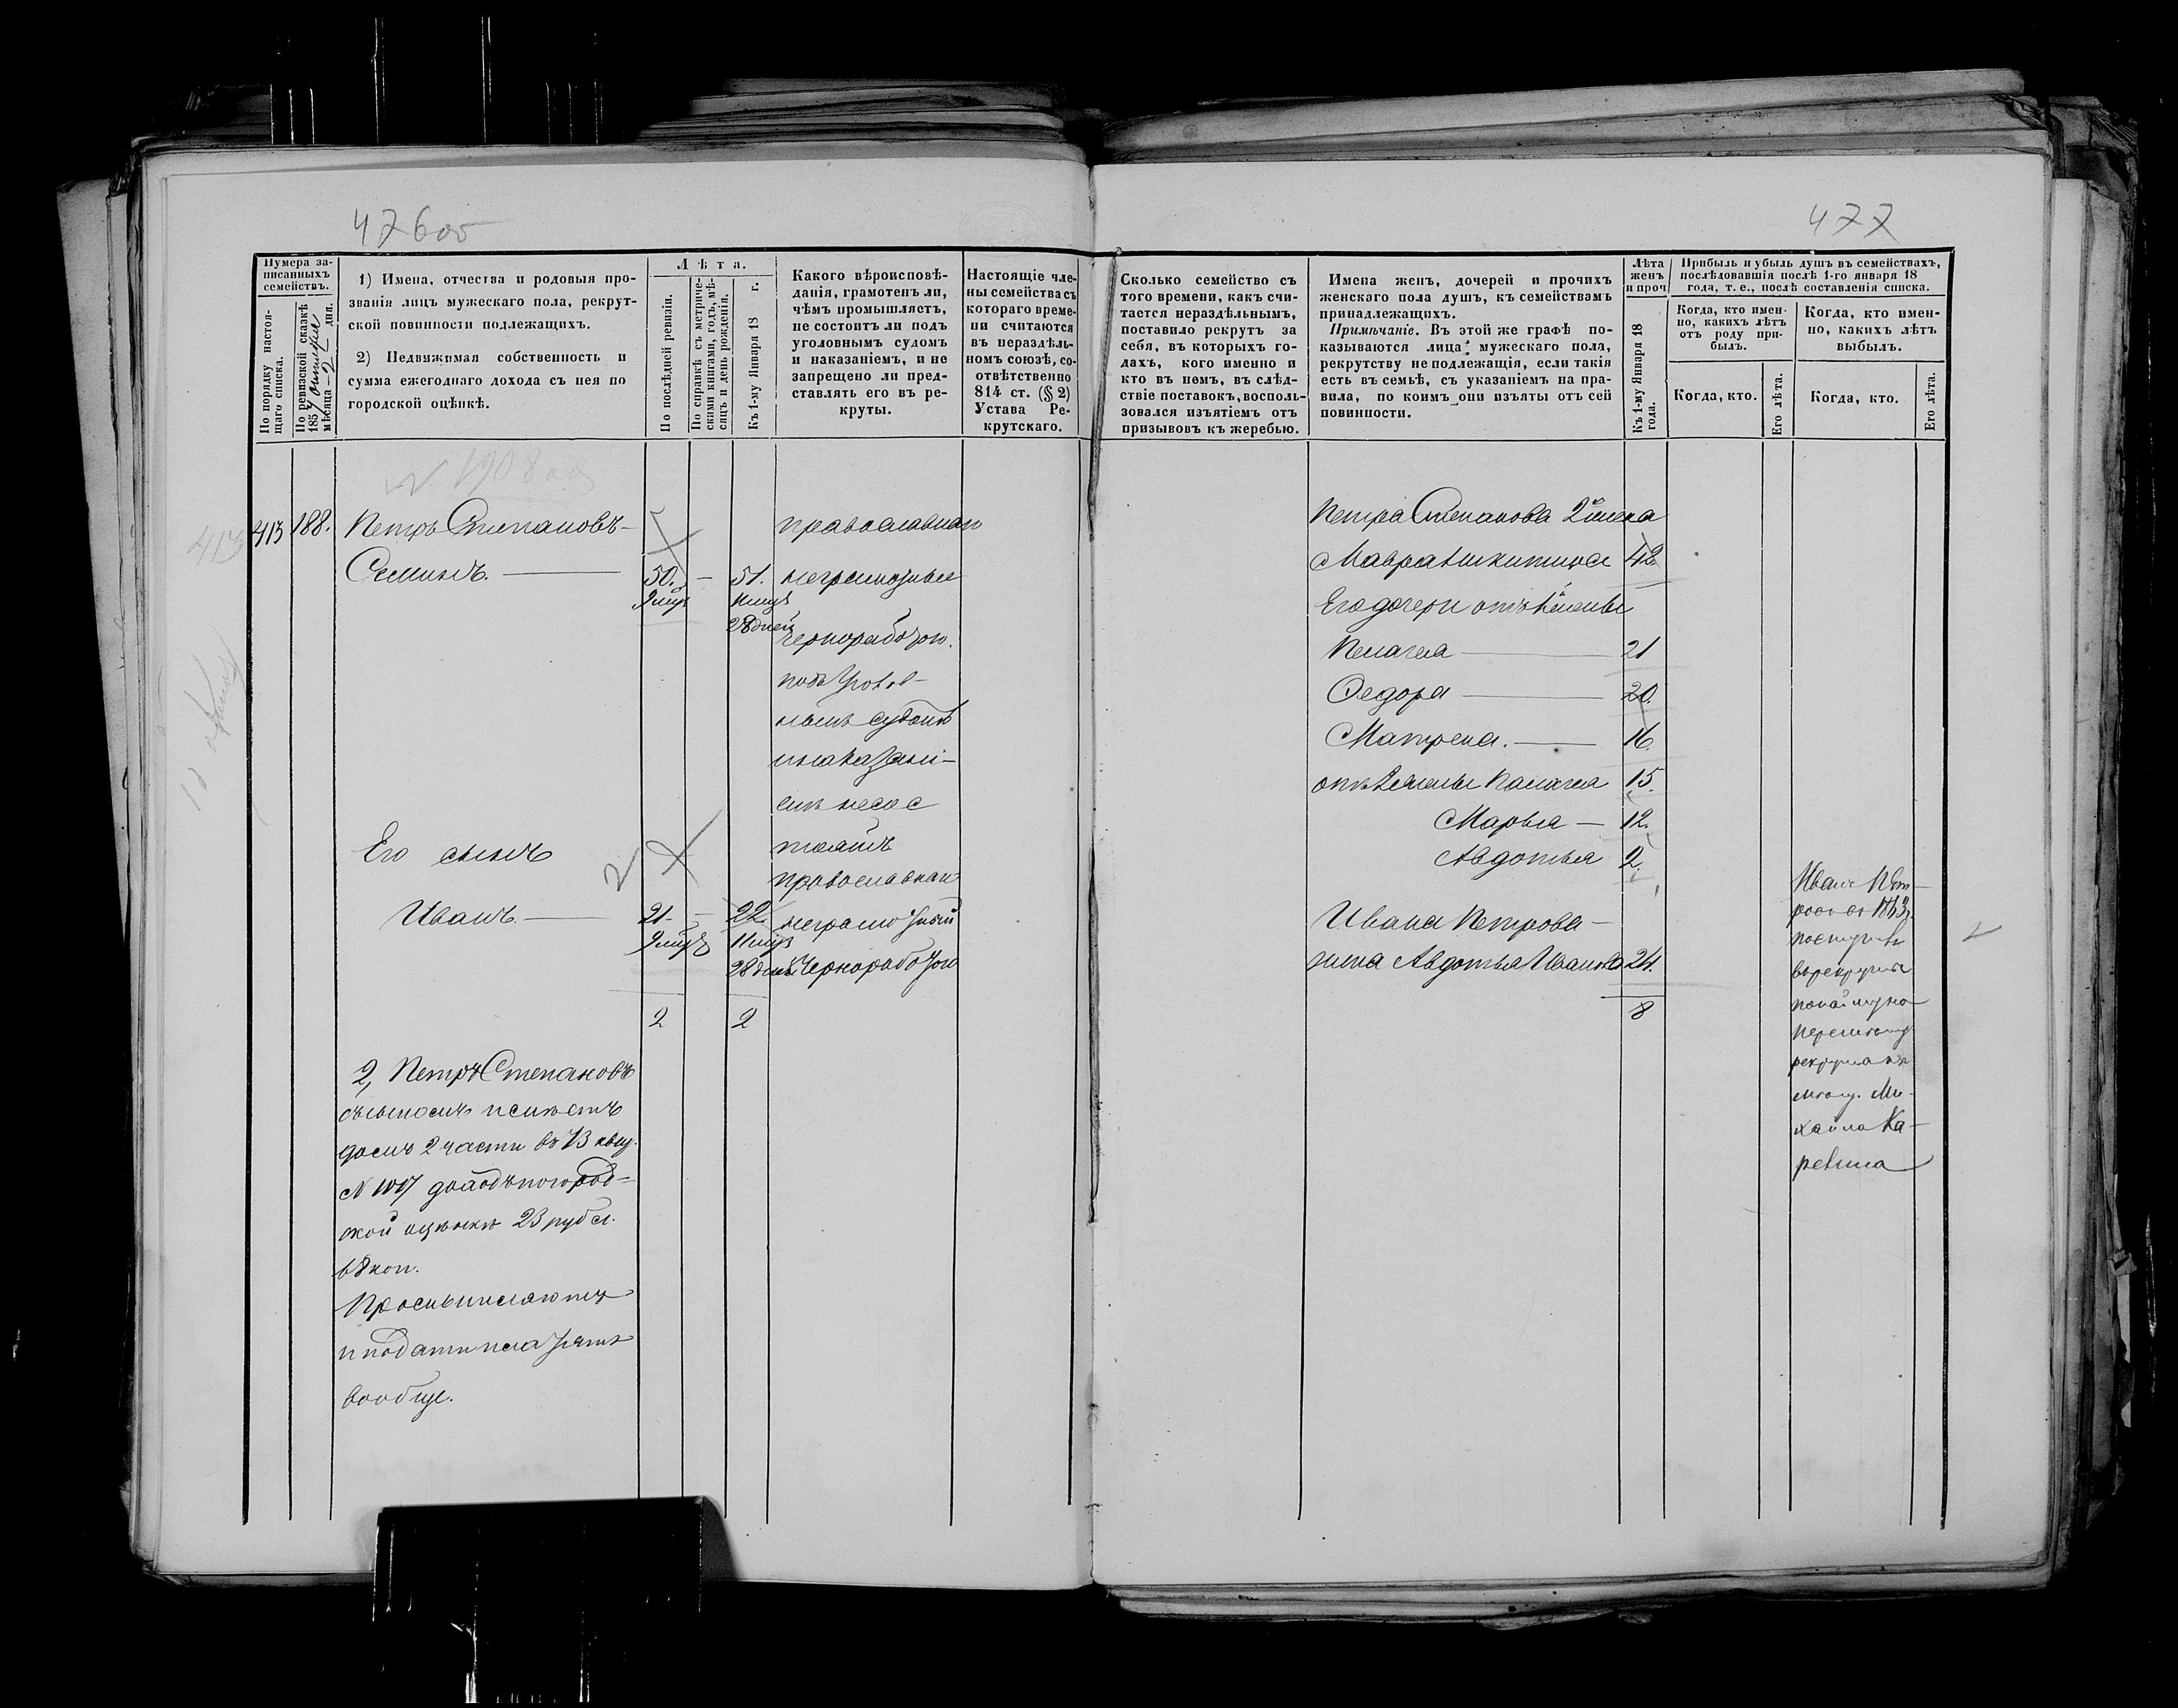 476об
477
Нумера записанныхъ семействъ.
По порядку настоящаго списка.
По ревизской сказкѣ 1857 октября мѣсяца 2 дня.
1) Имена, отчества и родовыя прозванія лицъ мужескаго пола, рекрутской повинности подлежащихъ.
2) Недвижимая собственность и сумма ежегоднаго дохода съ нея по городской оцѣнкѣ.
Лѣта.
По послѣдней ревизіи.
По справкѣ съ метрическими книгами, годъ, мѣсяцъ и день рожденія.
Къ 1-му Января 18 г.
Какого вѣроисповѣданія, грамотенъ ли, чѣмъ промышляетъ, не состоитъ ли подъ уголовнымъ судомъ и наказаніемъ, и не запрещено ли представлять его въ рекруты.
Настоящіе члены семейства съ котораго времени считаются въ нераздѣльномъ союзѣ, соотвѣтственно 814 ст. (§ 2) Устава Рекрутскаго.
Сколько семейство съ того времени, какъ считается нераздѣльнымъ, поставило рекрутъ за себя, въ которыхъ годахъ, кого именно и кто въ немъ, въ слѣдствіе поставокъ, воспользовался изъятіемъ отъ призывовъ къ жеребью.
Имена женъ, дочерей и прочихъ женскаго пола душъ, къ семействамъ принадлежащихъ.
Примѣчаніе. Въ этой же графѣ показываются лица мужескаго пола, рекрутству не подлежащія, если такія есть въ семьѣ, съ указаніемъ на правила, по коимъ они изъяты отъ сей повинности.
Лѣта женъ и проч
Къ 1-му Января 18 года.
Прибыль и убыль душъ въ семействахъ, послѣдовавшія послѣ 1-го января 18 года, т. е., послѣ составленія списка.
Когда, кто именно, какихъ лѣтъ отъ роду прибылъ.
Когда, кто именно, какихъ лѣтъ выбылъ.
Когда, кто.
Его лѣта.
Когда, кто.
Его лѣта.
413
413 188. Петръ Степановъ
Семинъ. 50. 51.
9 мцъ 11 мцъ
28 дней
православнаго
неграмотный
чернорабочаго.
подъ уголов-
нымъ судомъ
и наказані-
емъ не сос
тоитъ
Его сынъ
Иванъ 21. 22.
9 мцъ 11 мцъ
28 дней
православнаго
неграмотный
чернорабочаго
2 2
2, Петръ Степановъ
съ сыномъ имѣетъ
домъ 2 части въ 73 кварт.
N 1017 доходъ по город-
ской оцѣнкѣ 23 рубл.
68 коп.
и подати платятъ
вообще.
Петра Степанова 2 жена
Мавра Никитина 42
Его дочери отъ 1 жены
Пелагея 21
Федора 20.
Матрена. 16.
отъ 2 жены Палагея 15.
Марья 12.
Авдотья 2.
Ивана Петрова
жена Авдотья Иванова 24.
8
Иванъ Пет-
ровъ въ 1863 г.
поступилъ
въ рекруты
по найму за
рекрута
Ми-
хайла Ка-
ревина